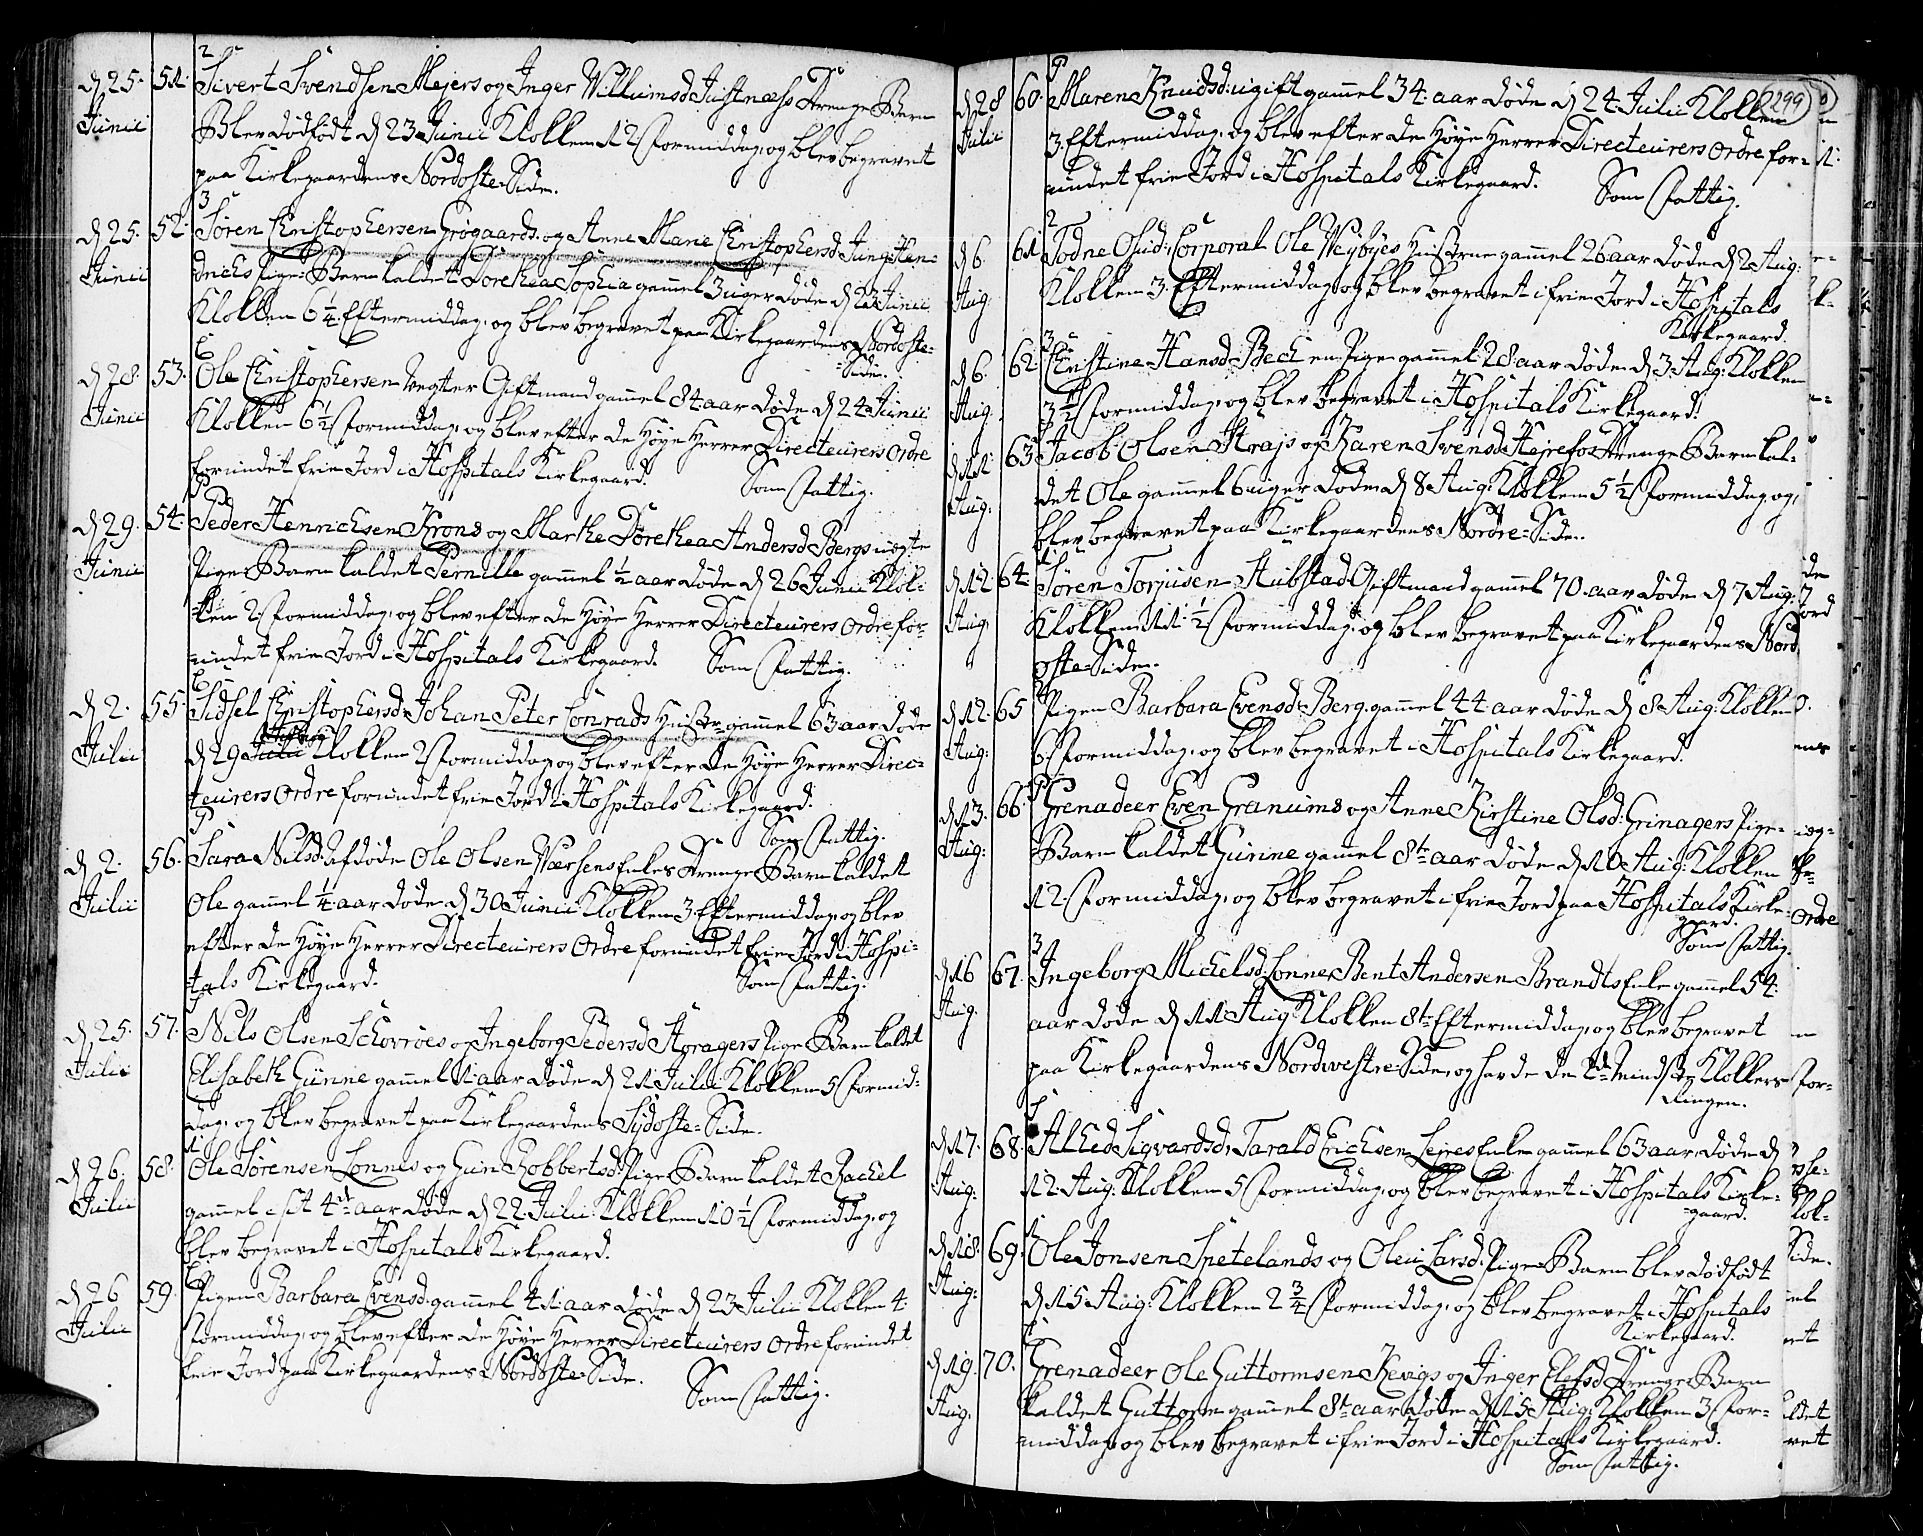 2
d 25. 51. Sivert Svendsen Mejers og Inger Villumsd Justnæss Drenge Barn
Junii Blev dødfødt d 23 Junii Klokken 12 Formiddag, og blev begravet
paa Kirkegaardens Nordoste Side.
3
d 25. 52. Søren Christophersen Grøgaards og Anne Marie Christophersd Jung Hen-
Junii drichs Pige Barn kaldet Dorethea Sophia gamel 3 uger døde d 23 Junii
Klokken 6 1/4 Eftermiddag, og blev begravet paa Kirkegaardens Nordoste-
Side.
d 28. 53. Ole Christophersen Vegter Giftmand gamel 84 aar døde d 24 Junii
Junii Klokken 6 1/2 Formiddag, og blev efter de Høye Herrer Directeurers Ordre
forundet frie Jord i Hospitals Kirkegaard. Som Fattig.
d 29. 54. Peder Henrichsen Krons og Marthe Dorethea Andersd Bergs uægte
Junii Pige Barn kaldet Pernille gamel 1/2 aar døde d 26 Junii Klok-
ken 2 Formiddag, og blev efter de Høye Herrer Directeurers Ordre for-
undet frie Jord i Hospitals Kirkegaard. Som Fattig.
d 2. 55. Sidsel Christophersd Johan Peter Conrads Hustrue gamel 63 aar døde
Julii d 29 Julii Klokken 2 Formiddag og blev efter de Høye Herrer Direc-
teurers Ordre forundet frie Jord i Hospitals Kirkegaard.
Som Fattig.
d 2. 56. Sara Nilsd Afdøde Ole Olsen Værsens Enkes Drenge Barn kaldet
Julii Ole gamel 1/4 aar døde d 30 Junii Klokken 3 Eftermiddag, og blev
efter de Høye Herrer Directeurers Ordre forundet frie Jord i Hospi-
tals Kirkegaard. Som Fattig.
d 25. 57. Nils Olsen Schovroes og Ingeborg Pedersd Storagers Pige Barn kaldet
Julii Elisabeth Gunne gamel 1 aar døde d 21 Julii Klokken 5 Formid-
dag, og blev begravet paa Kirkegaardens Sydoste Side.
d 26. 58. Ole Sørensen Lonnes og Gun Robbertsd Pige Barn kaldet Rachel
Julii gamel i sit 4de aar døde d 22 Julii Klokken 10 1/2 Formiddag, og
blev begravet i Hospitals Kirkegaard.
d 26 59. Pigen Barbara Evensd gamel 41 aar døde d 23 Julii Klokken 4
Julii Formiddag, og blev efter de Høye Herrer Directeurers Ordre forundet
frie Jord paa Kirkegaardens Nordoste Side.
Som Fattig.
299
d 28 60. Maren Knudsd ugift gamel 34 aar døde d 24 Julii Klokken
Julii 3 Eftermiddag, og blev efter de Høye Herrer Directeurers Ordre for-
undet frie Jord i Hospitals Kirkegaard. Som Fattig.
2
d 6. 61. Todne Osuld: Corporal Ole Veybyes Hustrue gamel 26 aar døde d 2 Aug:
Aug. Klokken 3 Eftermiddag, og blev begravet i frie Jord i Hospitals
Kirkegaard.
3
d 6. 62. Christine Hansd Bech en Pige gamel 28 aar døde d 3 Aug: Klokken
Aug. 3 1/2 Formiddag, og blev begravet i Hospitals Kirkegaard.
d 11. 63. Jacob Olsen Strajs og Karen Svensd Hejrefos Drenge Barn kal-
Aug: det Ole gamel 6 uger døde d 8 Aug: Klokken 5 1/2 Formiddag, og
blev begravet paa Kirkegaardens Nordre Side.
d 12. 64. Søren Torjusen Stubstad Giftmand gamel 70 aar døde d 7 Aug:
Aug: Klokken 11 1/2 Formiddag, og blev begravet paa Kirkegaardens Nord
oste Side.
d 12. 65 Pigen Barbara Evensd Berg gamel 44 aar døde d 8 Aug: Klokken
Aug: 6 Formiddag, og blev begravet i Hospitals Kirkegaard.
d 13. 66. Grenadeer Even Granums og Anne Kirstine Olsd: Grinagers Pige-
Aug: Barn kaldet Gunne gamel 8te aar døde d 10 Aug: Klokken
12 Formiddag, og blev begravet i frie Jord paa Hospitals Kirke-
gaard.
Som Fattig.
3
d 16 67. Ingeborg Michelsd: Lonne Bent Andersen Brandts Enke gamel 54
Aug. aar døde d 11 Aug: Klokken 8te Eftermiddag, og blev begravet
paa Kirkegaardens Nordvestre Side, og havde den 2de mindste Klokkers
Ringen.
d 17. 68. Alhed Sigvardsd, Tarald Erichsen Lejres Enke gamel 63 aar, døde d
Aug: 12 Aug: Klokken 5 Formiddag, og blev begravet i Hospitals Kirke-
gaard.
d 18. 69. Ole Jonsen Spetelands og Oleu Larsd: Pige Barn blev dødfødt
Aug: d 15 Aug: Klokken 2 3/4 Formiddag, og blev begravet i Hospitals
Kirkegaard.
d 19. 70. Grenadeer Ole Guttormsen Kevigs og Inger Elefsd Drenge Barn
Aug. kaldet Guttorm gamel 8te aar døde d 15 Aug: Klokken 3 For-
middag, og blev begravet i frie Jord i Hospitals Kirkegaard.
Som Fattig.